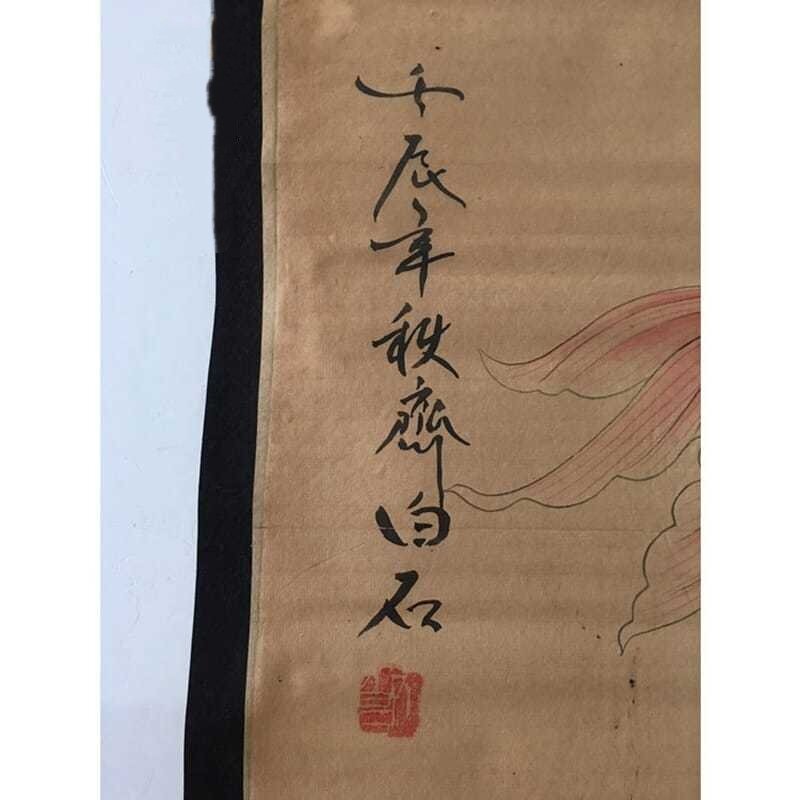 壬辰年秋齊白石